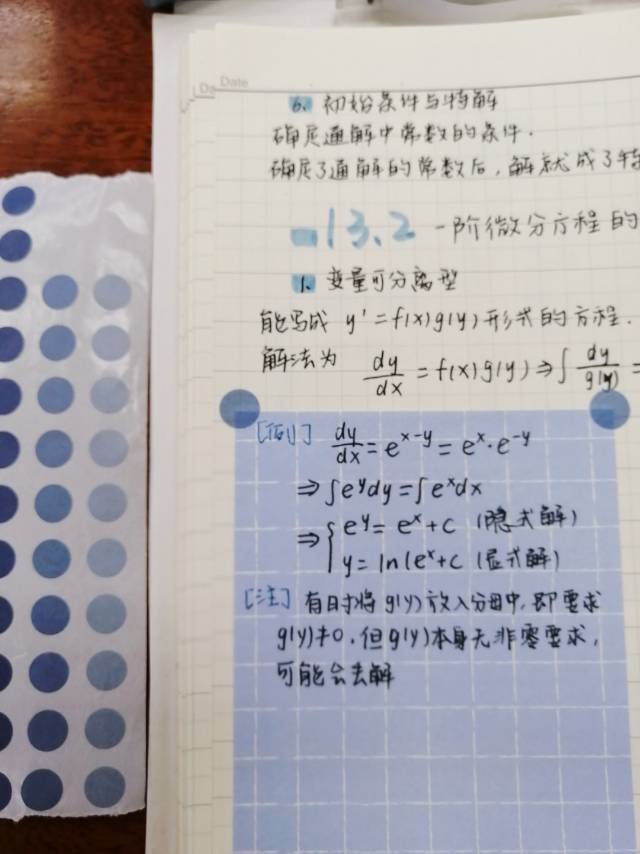 Date
6. 初始条件与特解
确定通解中常数的条件.
确定了通解的常数后,解就成了特
13.2 一阶微分方程的
1. 变量可分离型
能写成 y'=f(x)g(y)形式的方程.
解法为 dy/dx = f(x)g(y) ⇒ ∫ dy/g(y) =
[例] dy/dx = e^(x-y) = e^x · e^(-y)
⇒ ∫e^y dy = ∫e^x dx
⇒ { e^y = e^x + c (隐式解)
y = ln(e^x + c (显式解)
[注] 有时将g(y)放入分母中,即要求
g(y)≠0,但g(y)本身无非零要求,
可能会去解